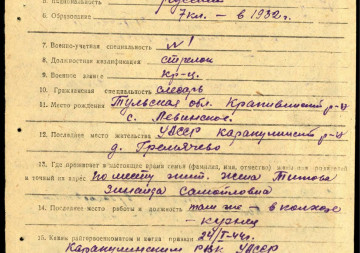 5. Национальность русский
6. Образование 7 кл. – в 1932 г.
7. Военно-учетная специальность №1
8. Должностная квалификация стрелок
9. Военное звание кр-ц.
10. Гражданская специальность слесарь
11. Место рождения Тульская обл. Крапивинский р-н
с. Левинское.
12. Последнее место жительства УАССР Каракулинский р-н
д. Гремячево
13. Где проживает в настоящее время семья (фамилия, имя, отчество)
и точный их адрес по месту жит. жена Титова
Зинаида Самойловна
14. Последнее место работы и должность там же – в колхозе
– кузнец
15. Каким райгорвоенкоматом и когда призван 24/I-44г.
Каракулинским РВК УАССР